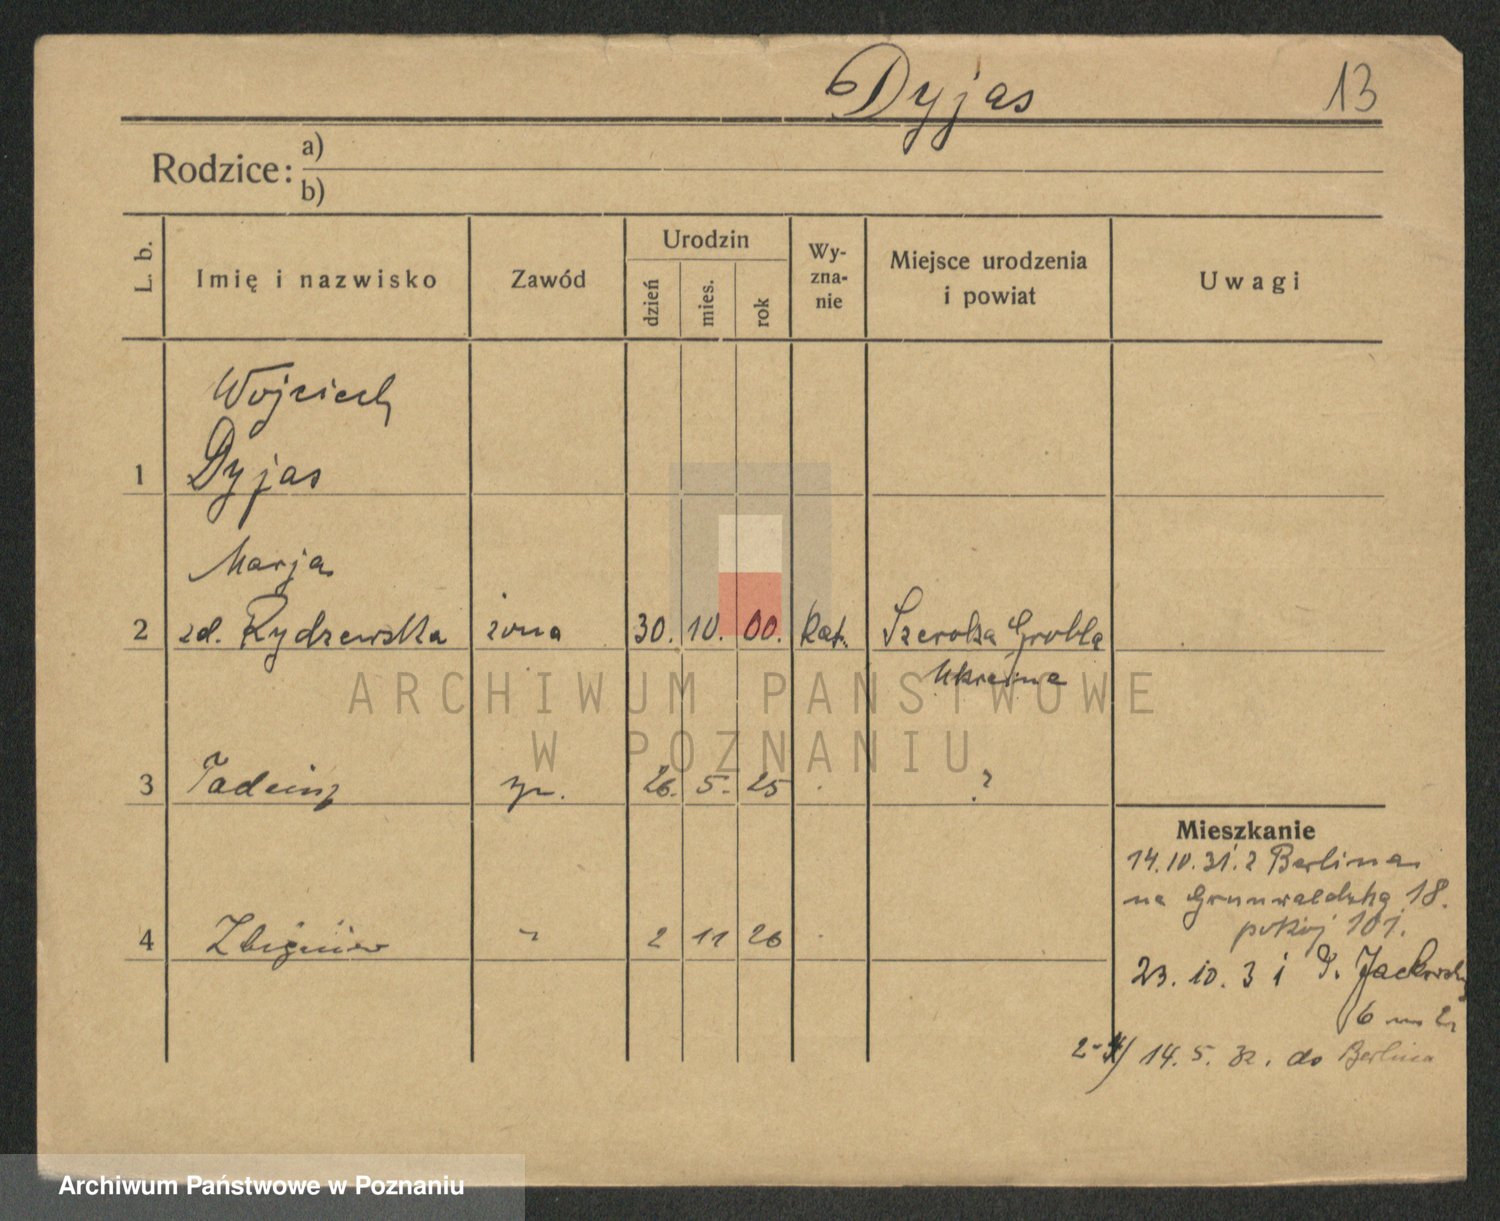 Dyjas
13
Rodzice:
a)
b)
L. b.
Imię i nazwisko
Zawód
Urodzin
dzień
mies.
rok
Wy-
zna-
nie
Miejsce urodzenia
i powiat
Uwagi
Wojciech
1 Dyjas
Marja
2 zd. Rydzewska żona 30. 10. 00. kat. Szeroka Grobla
Ukraina
3 Tadeusz 26. 5. 25 ?
4 Zbigniew " 2 11 26
Mieszkanie
14.10.31. z Berlina
na Grunwaldzką 18.
pokój 101.
23. 10. 31
6 m
2-4) 14. 5. 32. do Berlina
ARCHIWUM PAŃSTWOWE
W POZNANIU
Archiwum Państwowe w Poznaniu